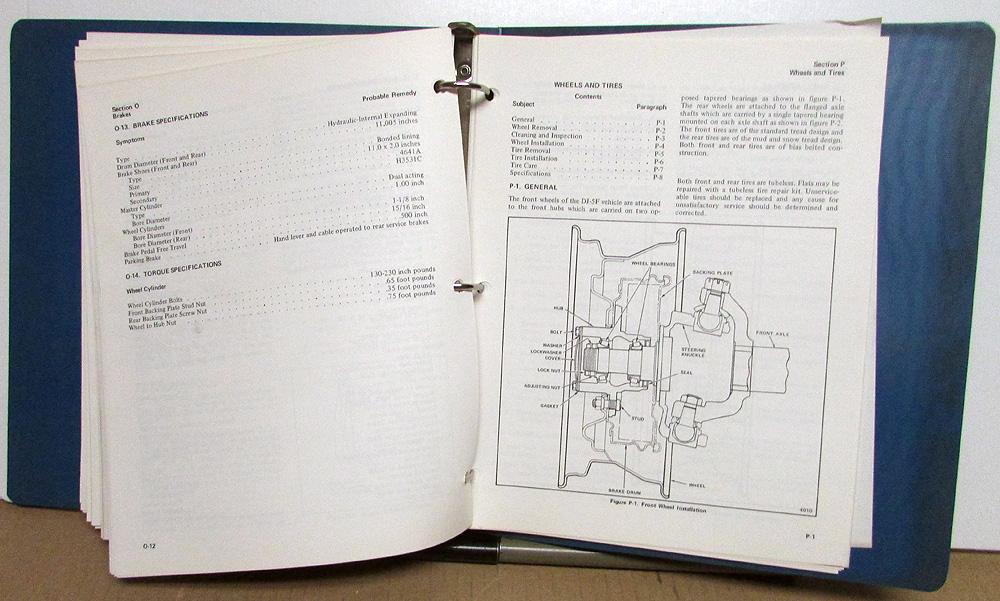 Section O
Brakes
Probable Remedy
O-13. BRAKE SPECIFICATIONS
Symptoms
Type . . . Hydraulic-Internal Expanding
Drum Diameter (Front and Rear) . . . 11.005 inches
Brake Shoes (Front and Rear)
Type . . . Bonded lining
Size . . . 11.0 x 2.0 inches
Primary . . . 4641A
Secondary . . . H3531C
Master Cylinder
Type . . . Dual acting
Bore Diameter . . . 1.00 inch
Wheel Cylinders
Bore Diameter (Front) . . . 1-1/8 inch
Bore Diameter (Rear) . . . 15/16 inch
Brake Pedal Free Travel . . . .500 inch
Parking Brake . . . Hand lever and cable operated to rear service brakes
O-14. TORQUE SPECIFICATIONS
Wheel Cylinder
Wheel Cylinder Bolts . . . 130-230 inch pounds
Front Backing Plate Stud Nut . . . .65 foot pounds
Rear Backing Plate Screw Nut . . . .35 foot pounds
Wheel to Hub Nut . . . .75 foot pounds
O-12
Section P
Wheels and Tires
WHEELS AND TIRES
Contents
Subject Paragraph
General . . . P-1
Wheel Removal . . . P-2
Cleaning and Inspection . . . P-3
Wheel Installation . . . P-4
Tire Removal . . . P-5
Tire Installation . . . P-6
Tire Care . . . P-7
Specifications . . . P-8
P-1. GENERAL
The front wheels of the DJ-5F vehicle are attached
to the front hubs which are carried on two op-
posed tapered bearings as shown in figure P-1.
The rear wheels are attached to the flanged axle
shafts which are carried by a single tapered bearing
mounted on each axle shaft as shown in figure P-2.
The front tires are of the standard tread design and
the rear tires are of the mud and snow tread design.
Both front and rear tires are of bias belted con-
struction.
Both front and rear tires are tubeless. Flats may be
repaired with a tubeless tire repair kit. Unservice-
able tires should be replaced and any cause for
unsatisfactory service should be determined and
corrected.
WHEEL BEARINGS
BACKING PLATE
HUB
BOLT
WASHER
LOCKWASHER
COVER
LOCK NUT
ADJUSTING NUT
GASKET
FRONT AXLE
STEERING
KNUCKLE
SEAL
STUD
BRAKE DRUM
WHEEL
4010
Figure P-1. Front Wheel Installation
P-1